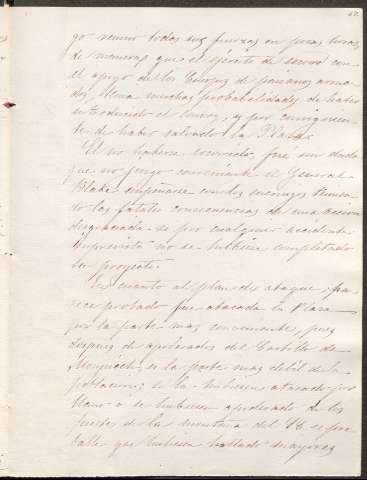 go reunir todas sus fuerzas en pocas horas
de maneras que el ejército de socorro con
el apoyo de los Cuerpos de paisanos arma-
dos, tenia muchas probabilidades de haber
introducido el convoy, y por consiguien-
te de haber salvado la Plaza.
El no haberse socorrido, fué sin duda
que no juzgó conveniente el General
Blake empeñarse con los enemigos temien-
do las fatales consecuencias de una accion
desgraciada si por cualquier accidente
imprevisto no se hubiera completado
su proyecto.
En cuanto al plan de ataque, pa-
rece probado fué atacada la Plaza
por la parte mas conveniente, pues
despues de apoderados del Castillo de
Monjuich, es la parte mas débil de la
poblacion; si la hubieran atacado por
llano ó se hubieran apoderado de los
fuertes de la montaña del
que hubieran hallado mayores